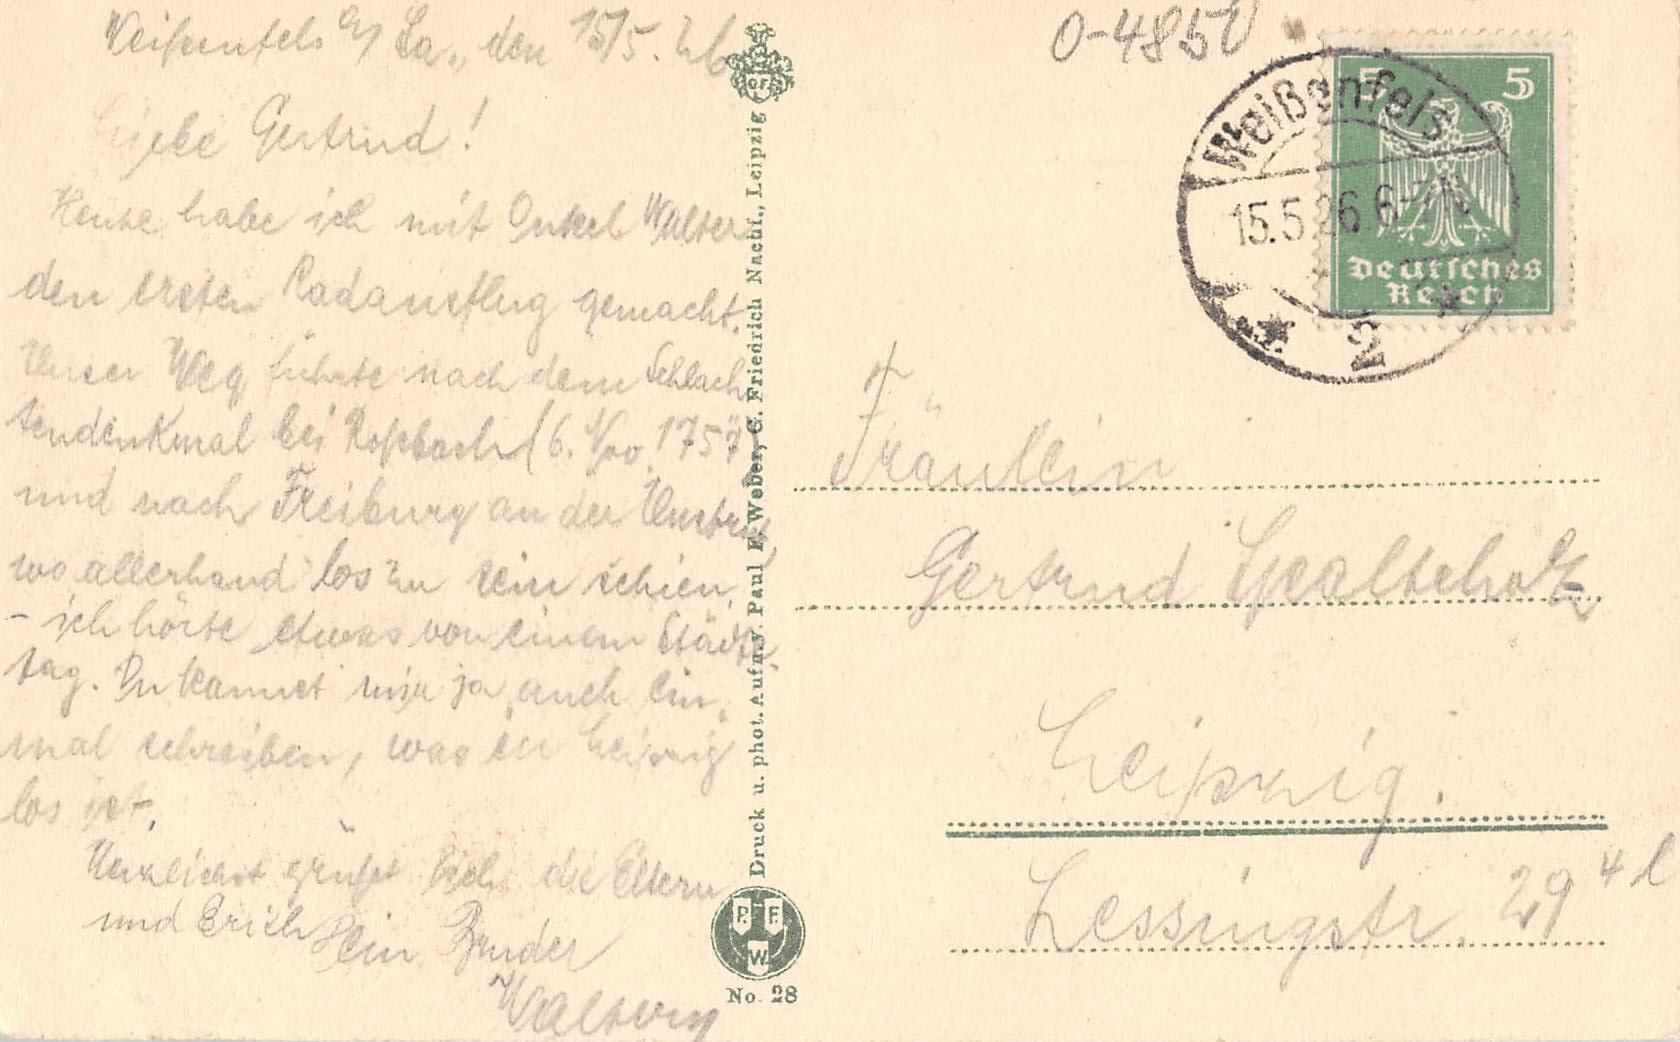 Weißenfels a/ Sa., den 15/5. 26
Liebe Gertrud!
Heute habe ich mit Onkel Walter
den ersten Radausflug gemacht.
Unser Weg führte nach dem Schlach
tendenkmal bei Roßbach (6. Nov. 1757)
und nach Freiburg an der Unstrut,
wo allerhand los zu sein schien,
- ich hörte etwas von einem Städte-
tag. Du kannst mir ja auch ein-
mal schreiben, was in Leipzig
los ist.
Herzlichst grüßt Dich, die Eltern
und Erich Dein Bruder
Druck u. phot. Aufn. v. Paul F. Weber, G. Friedrich Nachf., Leipzig
P. F. W.
No. 28
0-4850
Weißenfels
15.5.26.6-7N
* 2 *
5 5
Deutsches
Reich
Fräulein
Gertrud
Leipzig.
Lessingstr. 29 4 l